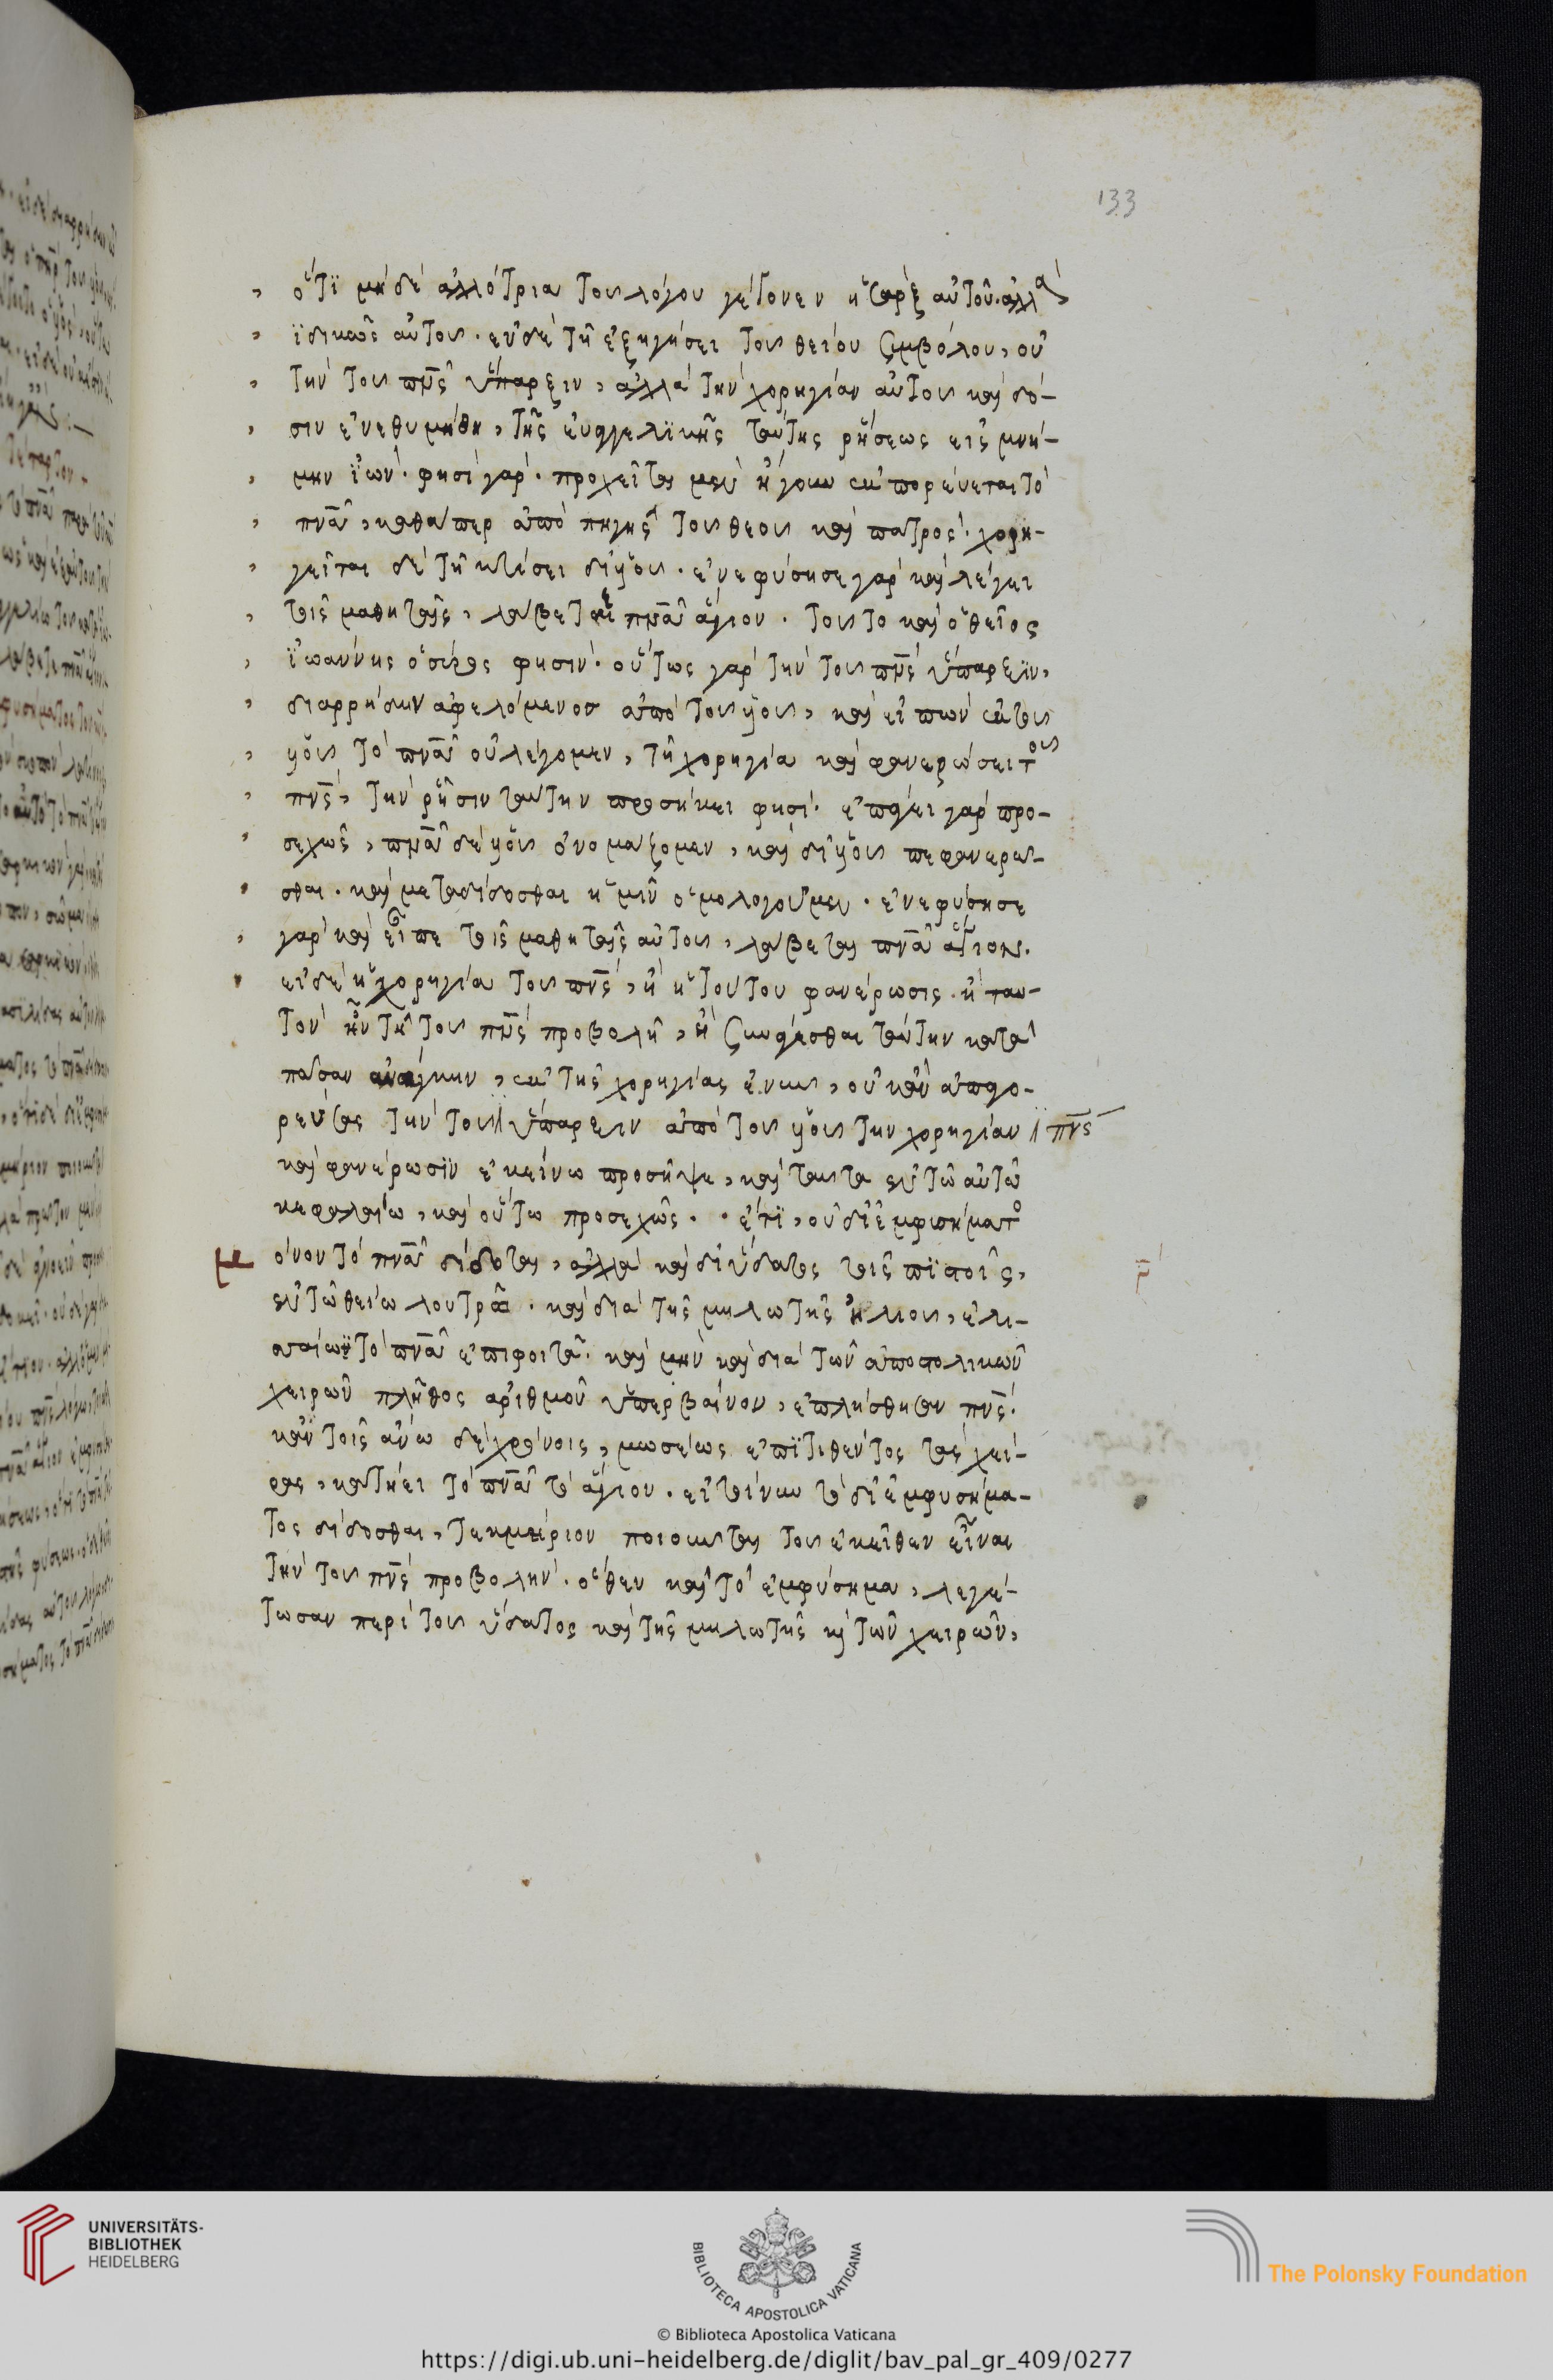 133
ὅτι μηδὲ ἀλλότρια τοῦ λόγου γέγονεν ἡ σὰρξ αὐτοῦ. ἀλλὰ
ϊδικῶς αὐτοῦ. ἐν δὲ τῆ ἐξηγήσει τοῦ θείου συμβόλου, οὐ
τὴν τοῦ πνς ὕπαρξιν, ἀλλὰ τὴν χορηγίαν αὐτοῦ καὶ δό-
σιν ἐνεθυμήθη, τῆς εὐαγγελϊκῆς ταύτης ρήσεως εἰς μνή-
μην ϊὼν. φησὶ γὰρ. προχεῖται μὲν ἤγουν ἐκπορεύεται τὸ
πνα, καθάπερ ἀπὸ πηγῆς τοῦ θεοῦ καὶ πατρὸς. χορη-
γεῖται δὲ τῆ κτίσει δι' υἱοῦ. ἐνεφύσησε γὰρ καὶ λέγει
τοῖς μαθηταῖς, λάβετε πνα ἅγιον. τοῦτο καὶ ὁ θεῖος
ϊωάννης ὁ
φησὶν. οὕτως γὰρ τὴν τοῦ πνς ὕπαρξιν,
διαρρήδην ἀφελόμενος ἀπὸ τοῦ υἱοῦ, καὶ εἰπὼν ἐκ τοῦ
υἱοῦ τὸ πνα οὐ λέγομεν, τῆ χορηγία καὶ φανερώσει τοῦ
πνς, τὴν ρῆσιν ταύτην προσήκει φησὶ. ἐπάγει γὰρ προ-
σεχῶς, πνα δὲ υἱοῦ ὀνομάζομεν, καὶ δι' υἱοῦ πεφανερῶ-
σθαι. καὶ μεταδίδοσθαι ἡμῖν ὁμολογοῦμεν. ἐνεφύσησε
γὰρ καὶ εἶπε τοῖς μαθηταῖς αὐτοῦ, λάβεται πνα ἅγιον.
εἰ δὲ ἡ χορηγία τοῦ πνς, ἢ ἡ τούτου φανέρωσις. ἢ ταυ-
τὸν ἦν τῆ τοῦ πνς προβολῆ, ἢ συνάγεσθαι ταύτην κατὰ
πᾶσαν ἀνάγκην, ἐκ τῆς χορηγίας ἐνῆν, οὐκ ἂν ἀπαγο-
ρεύσας τὴν τοῦ ὕπαρξιν ἀπὸ τοῦ υἱοῦ τὴν χορηγίαν πνς
καὶ φανέρωσϊν ἐκείνω προσῆψε, καὶ ταῦτα ἐν τῶ αὐτῶ
κεφαλαίω, καὶ οὕτω προσεχῶς. ἔτϊ, οὐ δι' ἐμφυσήματο
όνον τὸ πνα δίδοται, ἀλλὰ καὶ δι' ὕδατος τοῖς πϊστοῖς,
ἐν τῶ θείω λουτρῶ. καὶ διὰ τῆς μηλωτῆς ἠλιοῦ, ἐλι-
σσαίω τὸ πνα ἐπιφοιτᾶ. καὶ μὴν καὶ διὰ τῶν ἀποστολικῶν
χειρῶν πλῆθος ἀριθμοῦ ὑπερβαίνον, ἐπλήσθησαν πνς.
κἂν τοῖς ἄνω δὲ χρόνοις, μωσέως ἐπϊτιθέντος τὰς χεῖ-
ρας, κατήει τὸ πνα τὸ ἅγιον. εἰ τοίνυν τὸ δι' ἐμφυσήμα-
τος δίδοσθαι, τεκμήριον ποιοῦνται τοῦ ἐκεῖθεν εἶναι
τὴν τοῦ πνς προβολὴν. ὅθεν καὶ τὸ ἐμφύσημα, λεγέ-
τωσαν περὶ τοῦ ὕδατος καὶ τῆς μηλωτῆς κὶ τῶν χειρῶν,
UNIVERSITÄTS-
BIBLIOTHEK
HEIDELBERG
BIBLIOTECA APOSTOLICA VATICANA
The Polonsky Foundation
© Biblioteca Apostolica Vaticana
https://digi.ub.uni-heidelberg.de/diglit/bav_pal_gr_409/0277